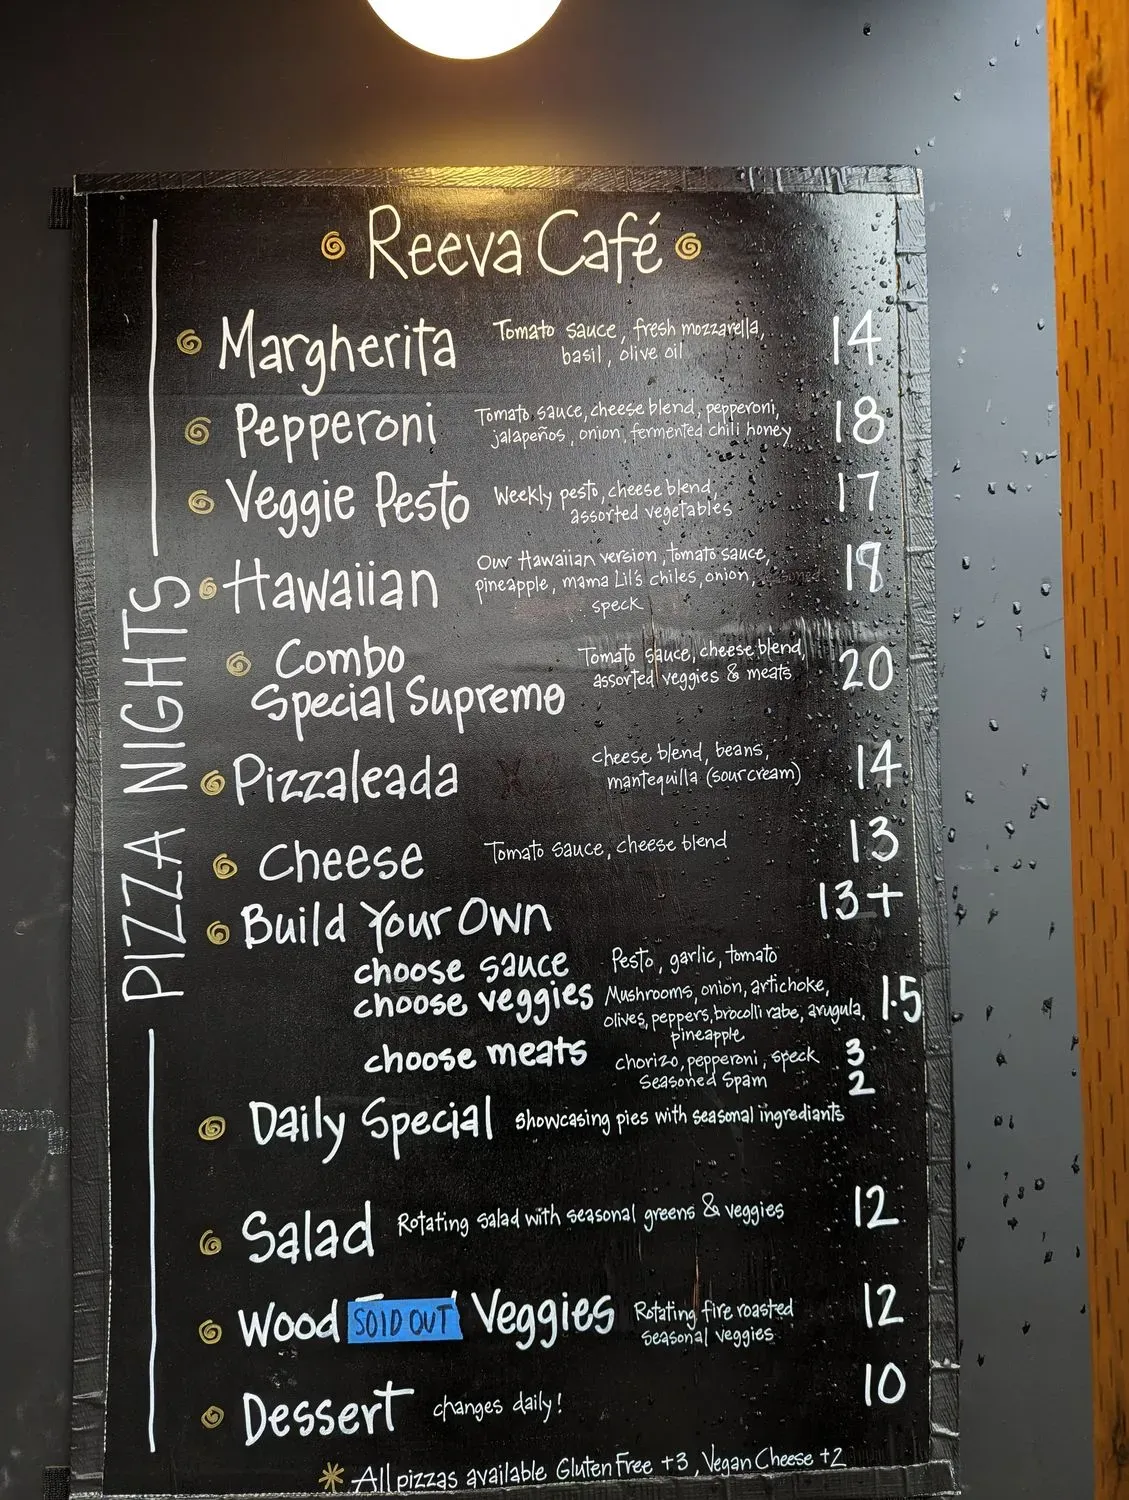 Reeva Café
PIZZA NIGHTS
Margherita
Tomato sauce, fresh mozzarella,
basil, olive oil
14
Pepperoni
Tomato sauce, cheese blend, pepperoni,
jalapeños, onion, fermented chili honey
18
Veggie Pesto
Weekly pesto, cheese blend,
assorted vegetables
17
Hawaiian
Our Hawaiian version, tomato sauce,
pineapple, mama Lil's chiles, onion,
speck
18
Combo
Special Supreme
Tomato sauce, cheese blend,
assorted veggies & meats
20
Pizzaleada
cheese blend, beans,
mantequilla (sour cream)
14
Cheese
Tomato sauce, cheese blend
13
Build Your Own
13+
choose sauce
Pesto, garlic, tomato
choose veggies
Mushrooms, onion, artichoke,
olives, peppers, brocolli rabe, arugula,
pineapple
1.5
choose meats
chorizo, pepperoni, speck
3
Seasoned Spam
2
Daily Special
showcasing pies with seasonal ingrediants
Salad
Rotating salad with seasonal greens & veggies
12
Wood SOLD OUT Veggies
Rotating fire roasted
seasonal veggies
12
Dessert
changes daily!
10
* All pizzas available Gluten Free +3, Vegan Cheese +2